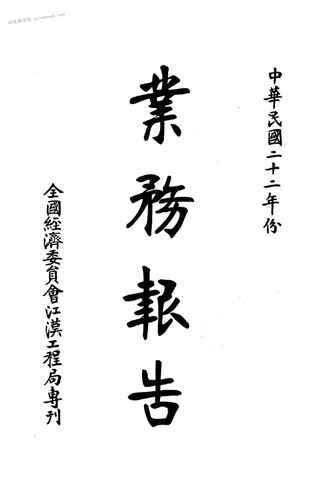 中華民國二十二年份
業務報告
全國經濟委員會江漢工程局專刊